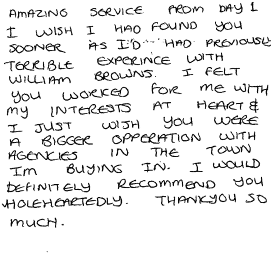 AMAZING SERVICE FROM DAY 1
I WISH I HAD FOUND YOU
SOONER AS I'D HAD PREVIOUSLY
TERRIBLE EXPERINCE WITH
WILLIAM BROWNS. I FELT
YOU WORKED FOR ME WITH
MY INTERESTS AT HEART &
I JUST WISH YOU WERE
A BIGGER OPPERATION WITH
AGENCIES IN THE TOWN
IM BUYING IN. I WOULD
DEFINITELY RECOMMEND YOU
WHOLEHEARTEDLY. THANKYOU SO
MUCH.